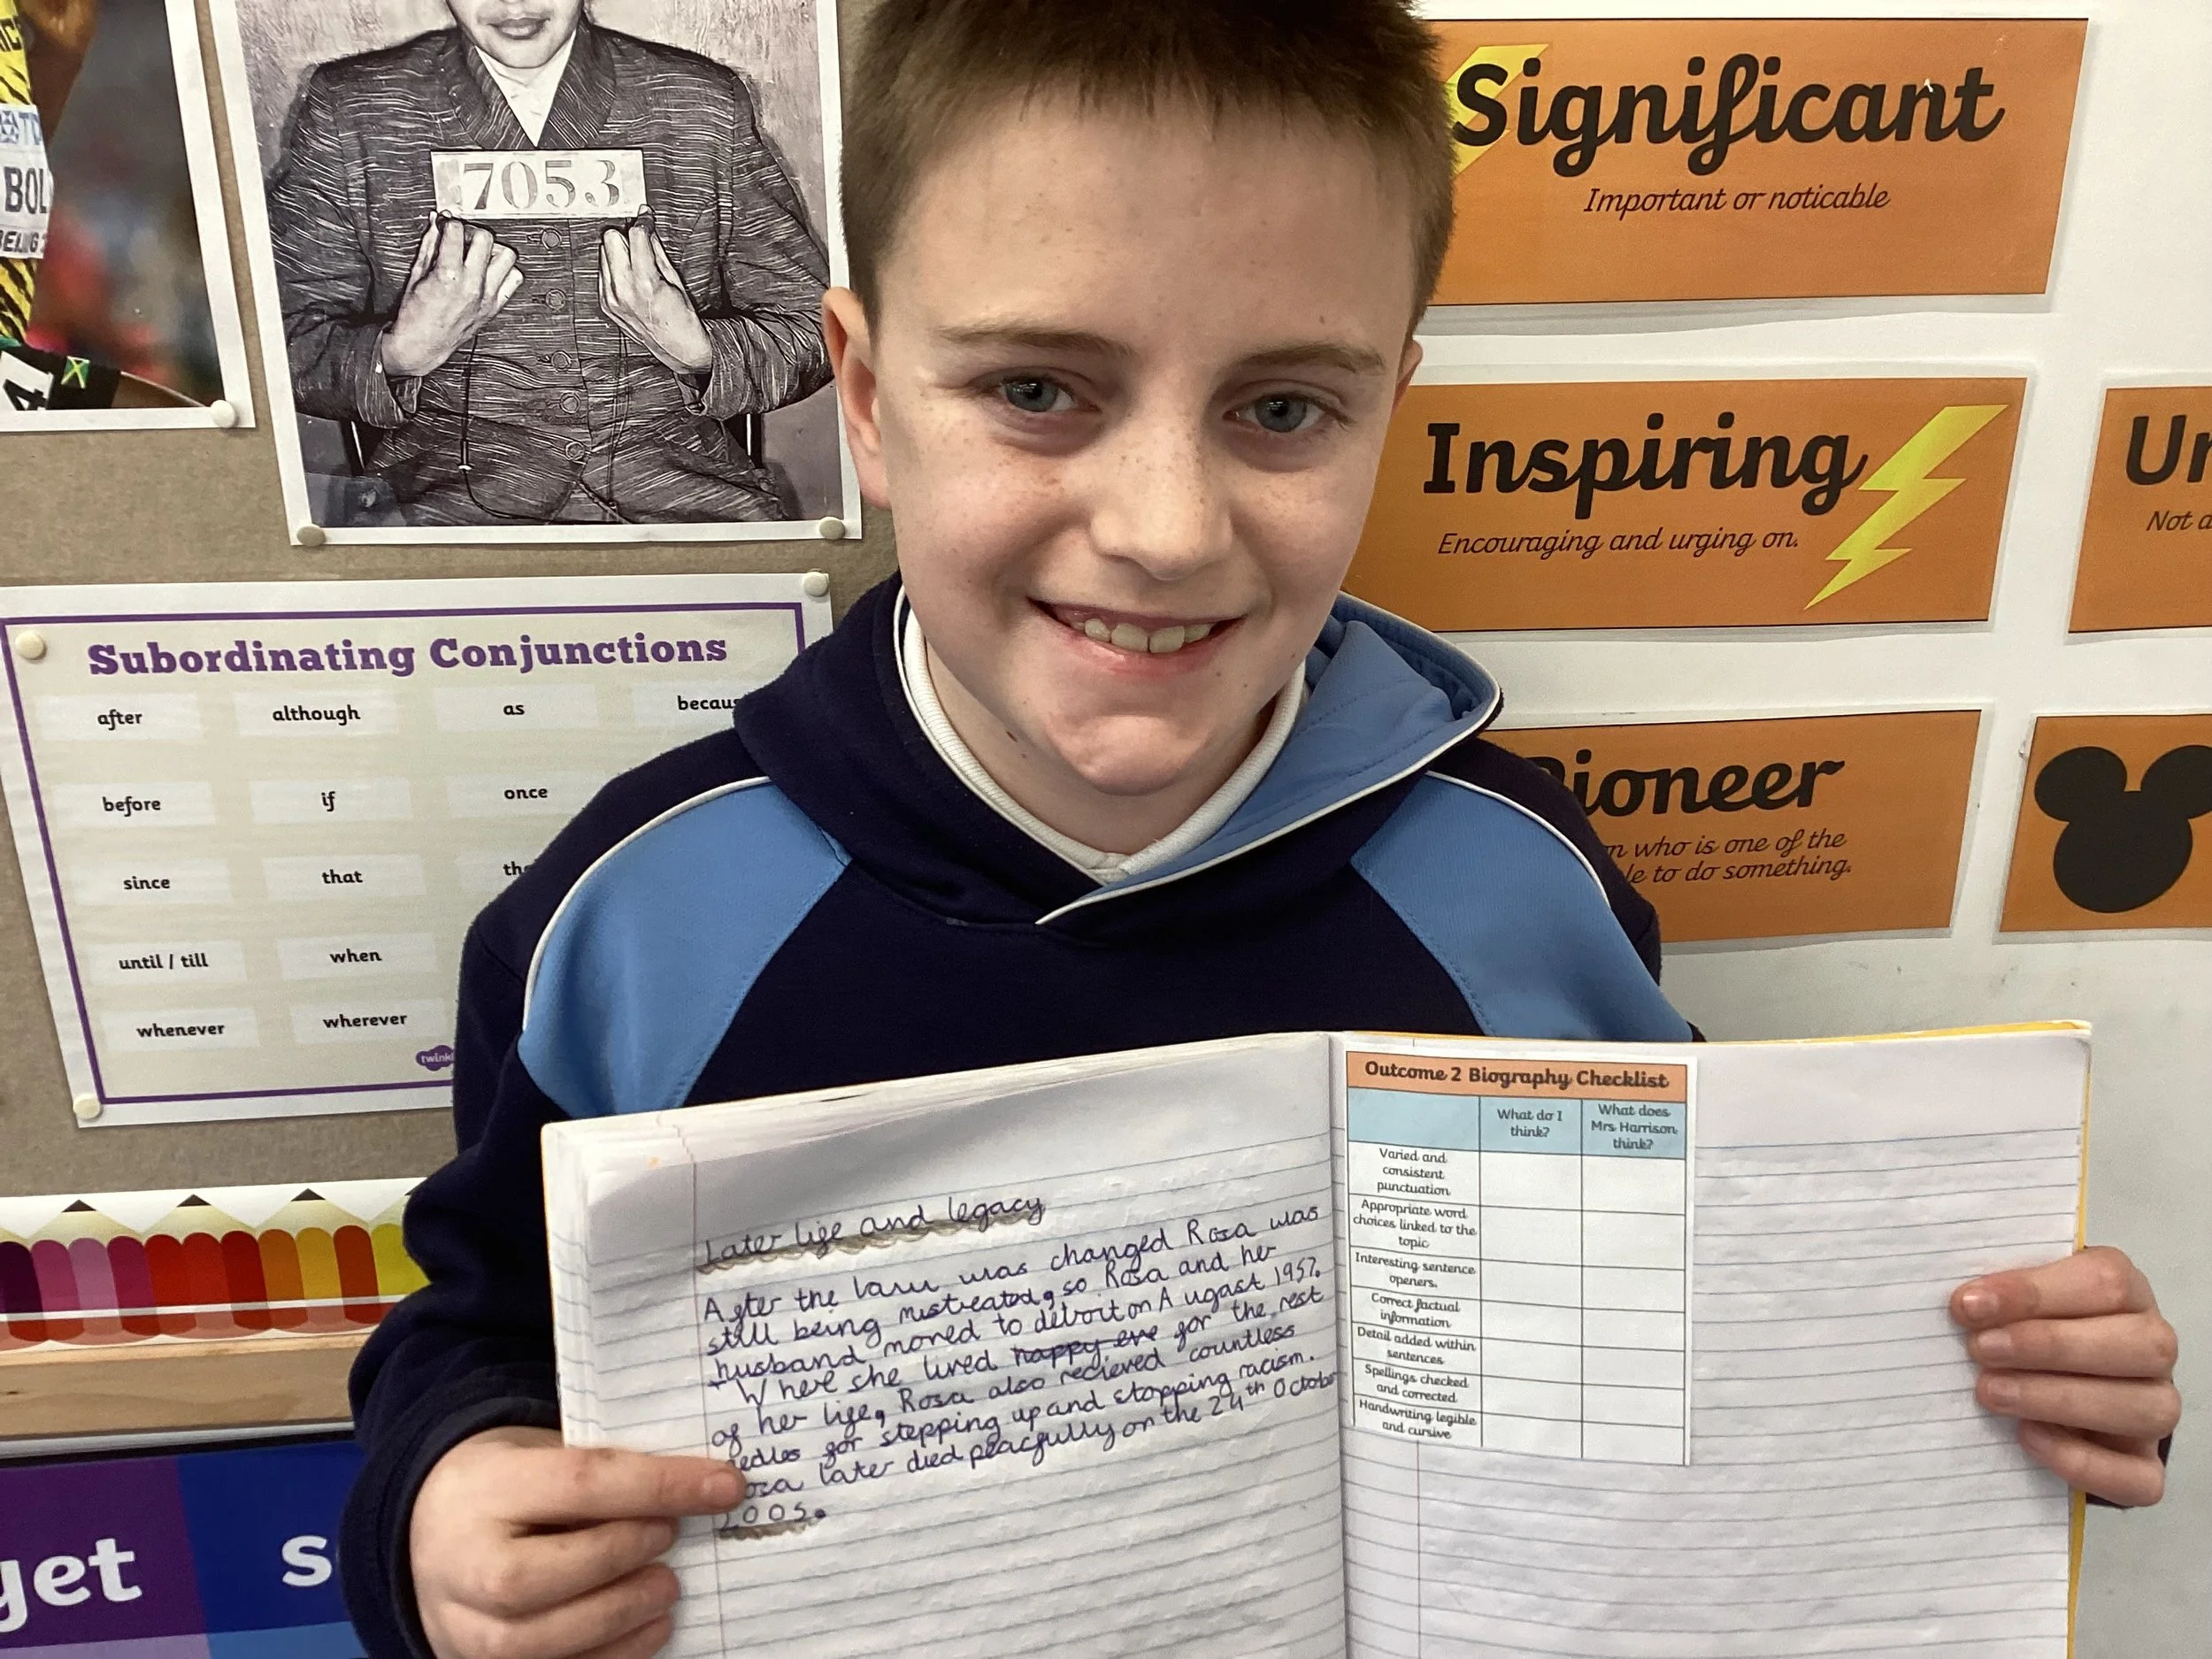 BOL
7053
Significant
Important or noticable
Inspiring
Encouraging and urging on.
Un
Not a
Pioneer
n who is one of the
le to do something.
Subordinating Conjunctions
after although as becau
before if once
since that th
until / till when
whenever wherever
twinkl
get s
Later life and legacy
After the law was changed Rosa was
still being mistreated, so Rosa and her
husband moved to detroit on Augast 1957.
Where she lived happy eve for the rest
of her life, Rosa also recieved countless
medles for stepping up and stopping racism.
Rosa later died peacfully on the 24th October
2005.
Outcome 2 Biography Checklist
What do I
think?
What does
Mrs Harrison
think?
Varied and
consistent
punctuation
Appropriate word
choices linked to the
topic
Interesting sentence
openers.
Correct factual
information
Detail added within
sentences
Spellings checked
and corrected
Handwriting legible
and cursive